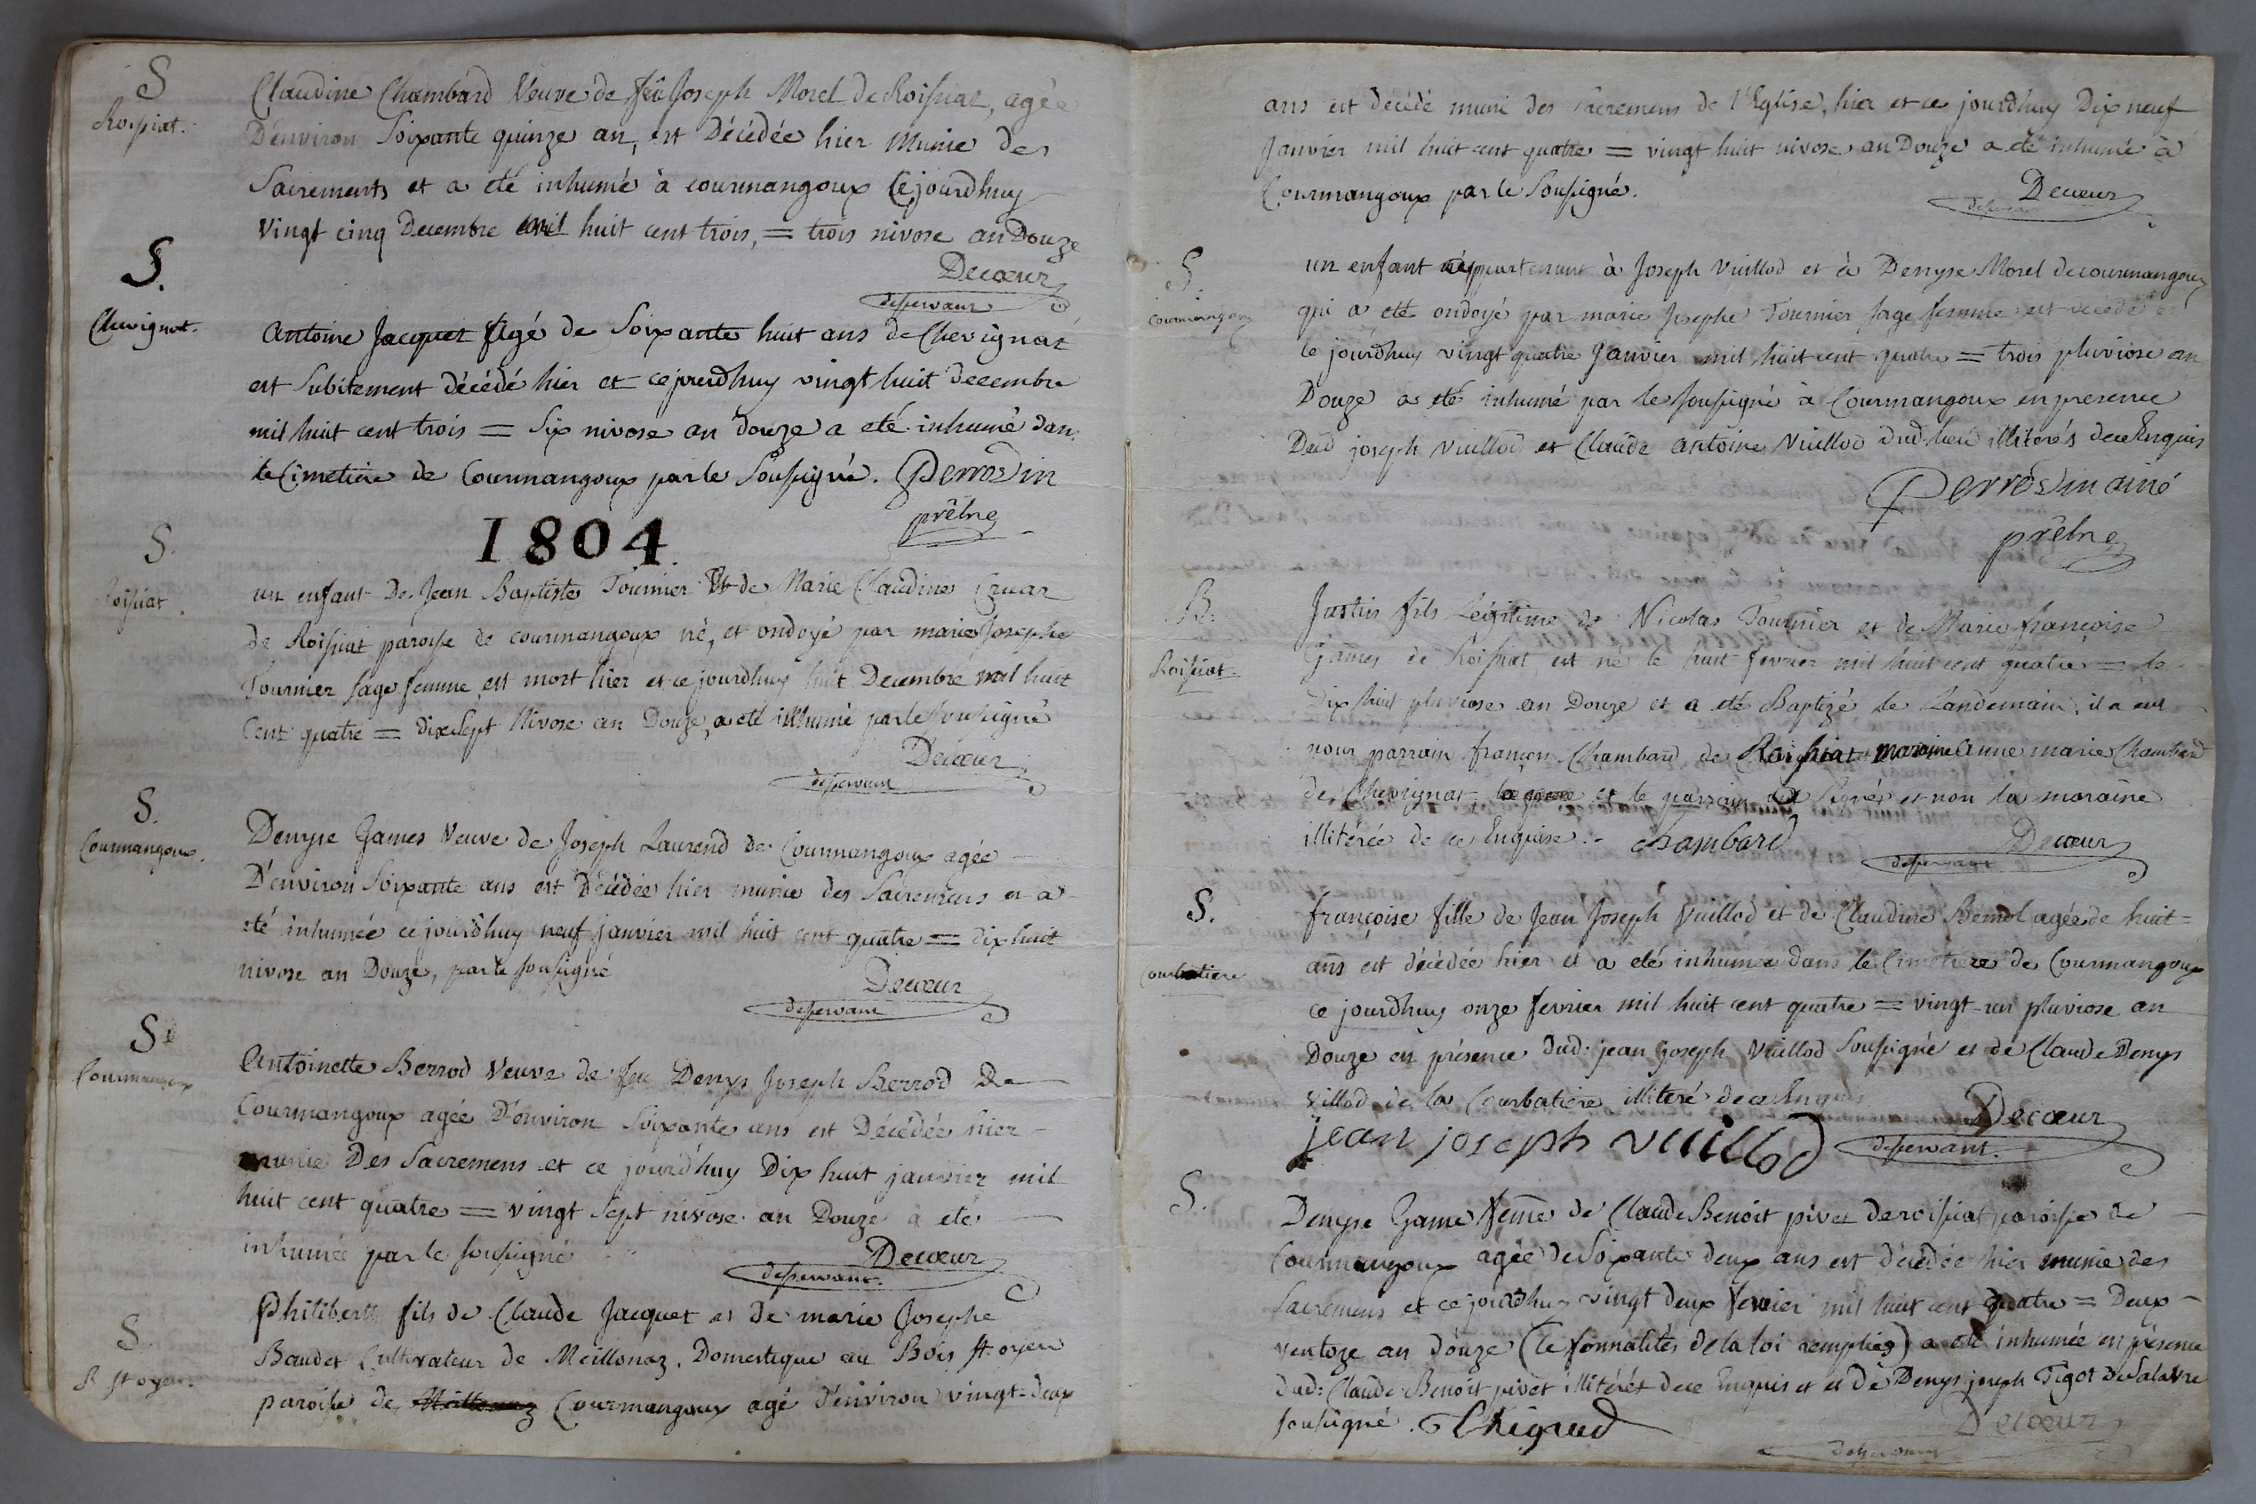 S
Roissiat.
Claudine Chambard Veuve de feû Joseph Morel de Roissiat, agée
D'environ Soixante quinze an, est Décédée hier Munie des
Sacrements et a eté inhumé à courmangoux Ce jourdhuy
Vingt cinq Decembre mil huit cent trois, = trois nivose an Douze
Decœur
desservant
S.
Chevignat.
Antoine Jacquet Agé de Soixante huit ans de Chevignat
est Subitement décédé hier et ce jourdhuy vingt huit decembre
mil huit cent trois = Six nivose an douze a eté inhumé dans
le Cimetière de Courmangoux par le Soussigné. Perrodin
prêtre
1804.
S.
Roissiat.
un enfant De Jean Baptiste Tournier Et de Marie Claudine
de Roissiat paroisse de courmangoux né, et ondoyé par marie Josephe
Tournier sage femme, est mort hier et ce jourdhuy huit Decembre mil huit
Cent quatre = dix Sept Nivose an Douze, a eté inhumé par le Soussigné
Decœur
desservant
S.
Courmangoux.
Denyse James Veuve de Joseph Laurend de Courmangoux agée
D'environ Soixante ans est Décédée hier munie des Sacremens et a
eté inhumée ce jourdhuy neuf janvier mil huit cent quatre = dix huit
nivose an Douze, par le soussigné
Decœur
desservant
S.
Courmangoux
Antoinette Berrod Veuve de feu Denys Joseph Berrod De
Courmangoux agée D'environ Soixante ans est Decédée hier
munie Des Sacremens et ce jourd'huy Dix huit janvier mil
huit cent quatre = vingt Sept nivose an Douze a eté
inhumée par le soussigné
Decœur
desservant.
S.
B. st oyen.
Philibert fils de Claude Jacquet et de marie Josephe
Baudet Cultivateur de Meillonaz. Domestique au Bois st oyen
paroisse de Courmangoux agé d'environ vingt-deux
ans est décédé muni des sacremens de l'Eglise, hier et ce jourdhuy Dix neuf
Janvier mil huit cent quatre = vingt huit nivose an Douze a eté inhumé à
Courmangoux par le Soussigné.
Decœur
desservant
S.
Courmangoux
un enfant appartenant à Joseph Vuillod et à Denyse Morel de courmangoux
qui a eté ondoyé par marie Josephe Tournier sage femme est decédé et
ce jourdhuy vingt quatre Janvier mil huit cent quatre = trois pluviose an
Douze a eté inhumé par le soussigné à Courmangoux en presence
Dud joseph Vuillod et Claude antoine Vuillod dud. lieu illiterés de ce Enquis
Perrodin ainé
prêtre
B.
Roissiat.
Justin fils Légitime de Nicolas Tournier et de Marie françoise
James de Roissiat est né le huit fevrier mil huit cent quatre = le
dix huit pluviose an Douze et a eté Baptizé le Landemain, il a eut
pour parrain françois Chambard de Roissiat maraine Anne marie Chambard
de Chevignat, le père et le parrain ont signés et non la maraine
illitérée de ce Enquise. Chambard
Decœur
desservant
S.
Courbatiere
françoise fille de Jean Joseph Vuillod et de Claudine Benoit agée de huit
ans est décédée hier et a eté inhumée dans le Cimetiere de Courmangoux
ce jourdhuy onze fevrier mil huit cent quatre = vingt-un pluviose an
Douze en présence dud. jean Joseph Vuillod Soussigné et de Claude Denys
Villod de la Courbatiere illiteré de ce Enquis
Decœur
jean joseph vuillod
desservant.
S.
Denyse Game feme de Claude Benoit pivet de roissiat paroisse de
Courmangoux agée de Soixante deux ans est décédée hier munie des
Sacremens et ce jourdhuy vingt deux fevrier mil huit cent quatre = Deux
ventoze an douze (le formalités de la loi remplies) a eté inhumée en présence
dud. Claude Benoit pivet illitérét de ce Enquis et de Denys joseph Tigot de Salavre
soussigné.
Decœur
desservant